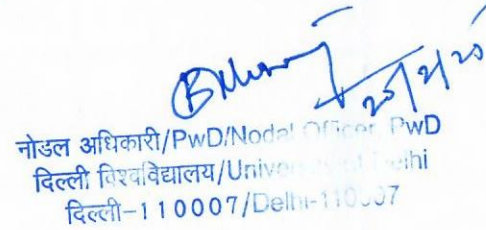 नोडल अधिकारी/PwD/Nodal Officer, PwD
दिल्ली विश्वविद्यालय/University of Delhi
दिल्ली-110007/Delhi-110007